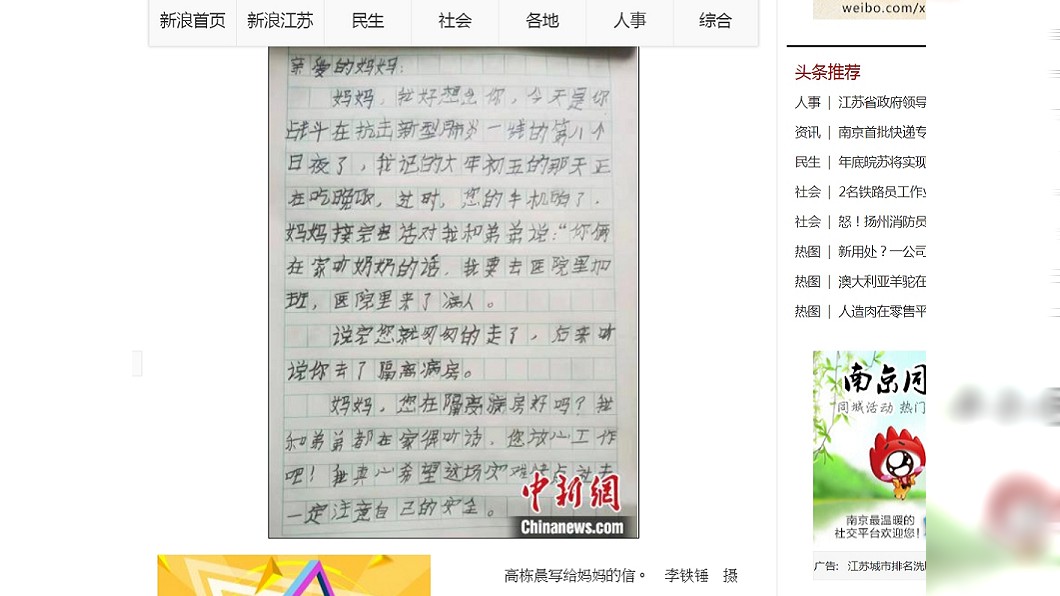 weibo.com/x
新浪首页 新浪江苏 民生 社会 各地 人事 综合
亲爱的妈妈：
妈妈，我好想念你，今天是你
战斗在抗击新型肺炎一线的第八个
日夜了，我记的大年初五的那天正
在吃晚饭，这时，您的手机响了，
妈妈接完电话对我和弟弟说：“你俩
在家听奶奶的话，我要去医院里加
班，医院里来了病人。
说完您就匆匆的走了，后来听
说你去了隔离病房。
妈妈，您在隔离病房好吗？我
和弟弟都在家得听话，您放心工作
吧！我真心希望这场灾难快点过去
一定注意自己的安全。
中新網
Chinanews.com
高栋晨写给妈妈的信。 李铁锤 摄
头条推荐
人事 | 江苏省政府领导
资讯 | 南京首批快递专
民生 | 年底皖苏将实现
社会 | 2名铁路员工作业
社会 | 怒！扬州消防员
热图 | 新用处？一公司
热图 | 澳大利亚羊驼在
热图 | 人造肉在零售平
南京同
同城活动 热门
南京最温暖的
社交平台欢迎您！
广告： 江苏城市排名洗